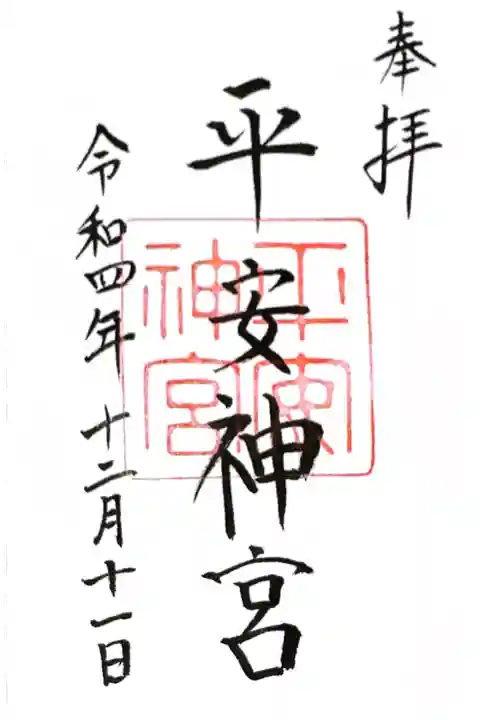 奉拝
平安神宮
平安神宮
令和四年 十二月十一日